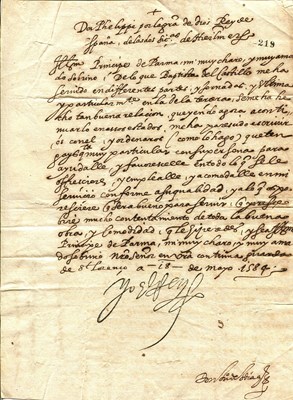 +
Don Phelippe por la gra de dios Rey de
España, de las dos Sicas de Hierlm &c
219
Illre Principe de Parma mi muy charo, y muy ama
do sobrino De lo que Baptista del Castillo me ha
servido en differentes partes, y jornadas, y ultima
y particularmte en la de la tercera, se me ha he
cho tan buena relacion, que yendo agora a conti
nuarlo en essos estados, me ha parescido escrivir
os con el, y ordenaros (como lo hago) que ten
gays muy particular con su persona para
ayudalle, y favorescelle en todo lo que se le
offresciere, y emplealle, y acomodalle en mi
servicio conforme a su qualidad, y a lo que
resciere que sera bueno para servir, que yo rresci
bire mucho contentamiento de toda la buena
obra, y comodidad, que le hizieredes, y sea Illre
Principe de Parma, mi muy charo, y muy ama
do sobrino nro Señor en vra continua guarda
de St Lorenço a -18- de mayo 1584
Yo el Rey